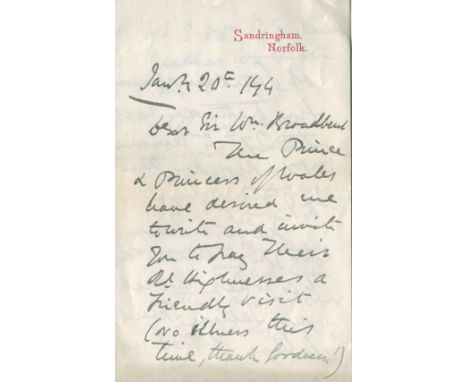 Sandringham,
Norfolk.
Jany. 20th /94
Dear Sir Wm. Broadbent
The Prince
& Princess of Wales
have desired me
to write and invite
you to pay Their
Rl. Highnesses a
friendly visit
(no illness this
time, thank Goodness!)